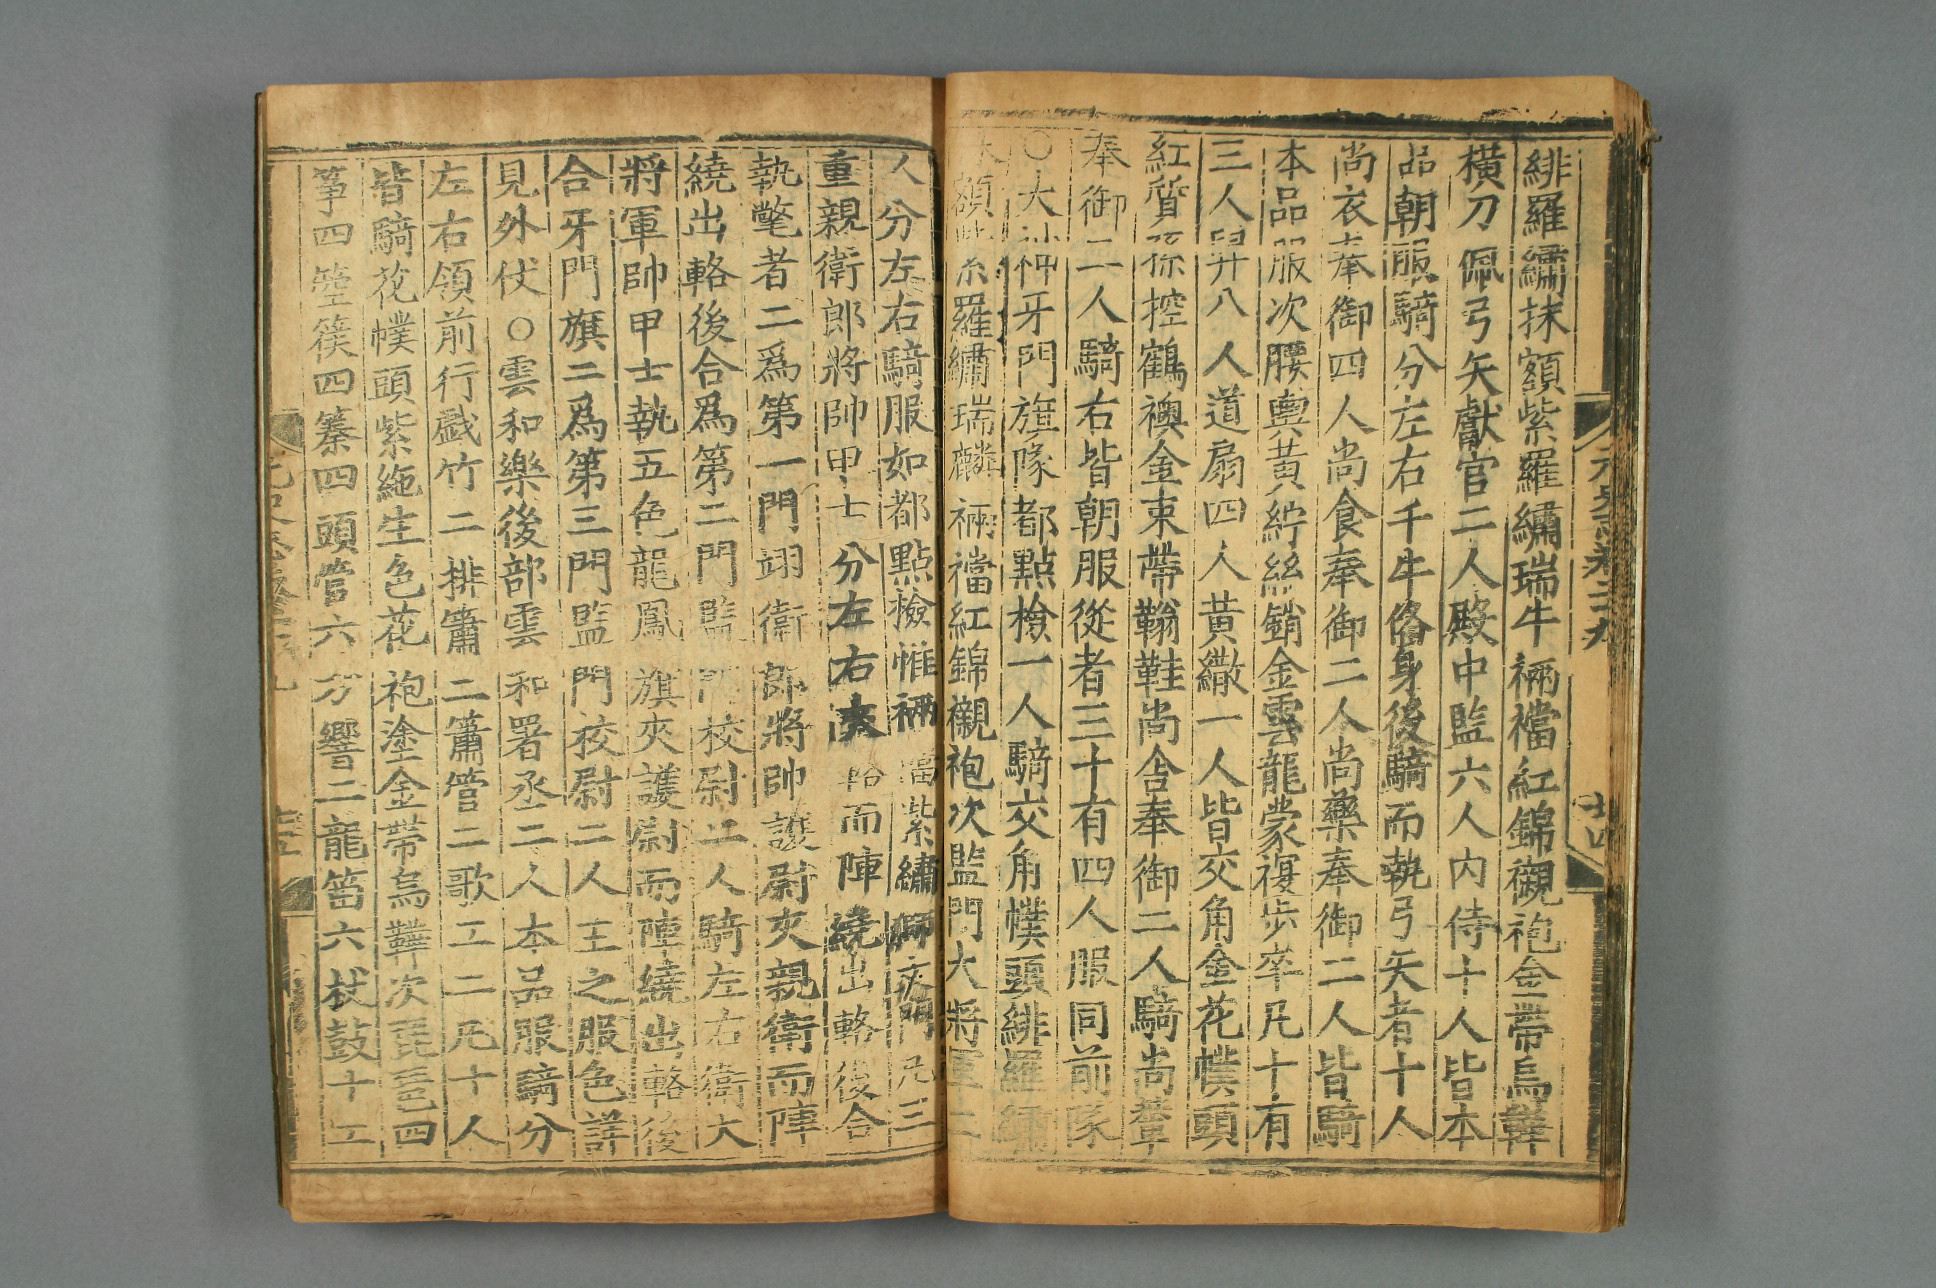 元史志卷二十九
廿四
緋羅繡抹額紫羅繡瑞牛裲襠紅錦襯袍金帶烏鞾
橫刀佩弓矢獻官二人殿中監六人內侍十人皆本
品朝服騎分左右千牛俻身後騎而執弓矢者十人
尚衣奉御四人尚食奉御二人尚藥奉御二人皆騎
本品服次腰輿黃紵絲銷金雲龍蒙複步卒凡十有
三人舁八人道扇四人黃繖一人皆交角金花幞頭
紅質孫控鶴襖金束帶鞝鞋尚舍奉御二人騎尚輦
奉御二人騎右皆朝服從者三十有四人服同前隊
○大神牙門旗隊都點檢一人騎交角幞頭緋羅繡
抹額紫羅繡瑞麟裲襠紅錦襯袍次監門大將軍二
人分左右騎服如都點檢惟裲襠紫繡獅次門凡三
重親衛郎將帥甲士分左右夾輅而陣繞出輅後合
執氅者二爲第一門翊衛郎將帥護尉夾親衛而陣
繞出輅後合爲第二門監門校尉二人騎左右衛大
將軍帥甲士執五色龍鳳旗夾護尉而陣繞出輅後
合牙門旗二爲第三門監門校尉二人主之服色詳
見外仗○雲和樂後部雲和署丞二人本品服騎分
左右領前行戲竹二排簫二簫管二歌工二凡十人
皆騎花幞頭紫絁生色花袍塗金帶烏鞾次琵琶四
箏四箜篌四𥱧四頭管六方響二龍笛六杖鼓十工